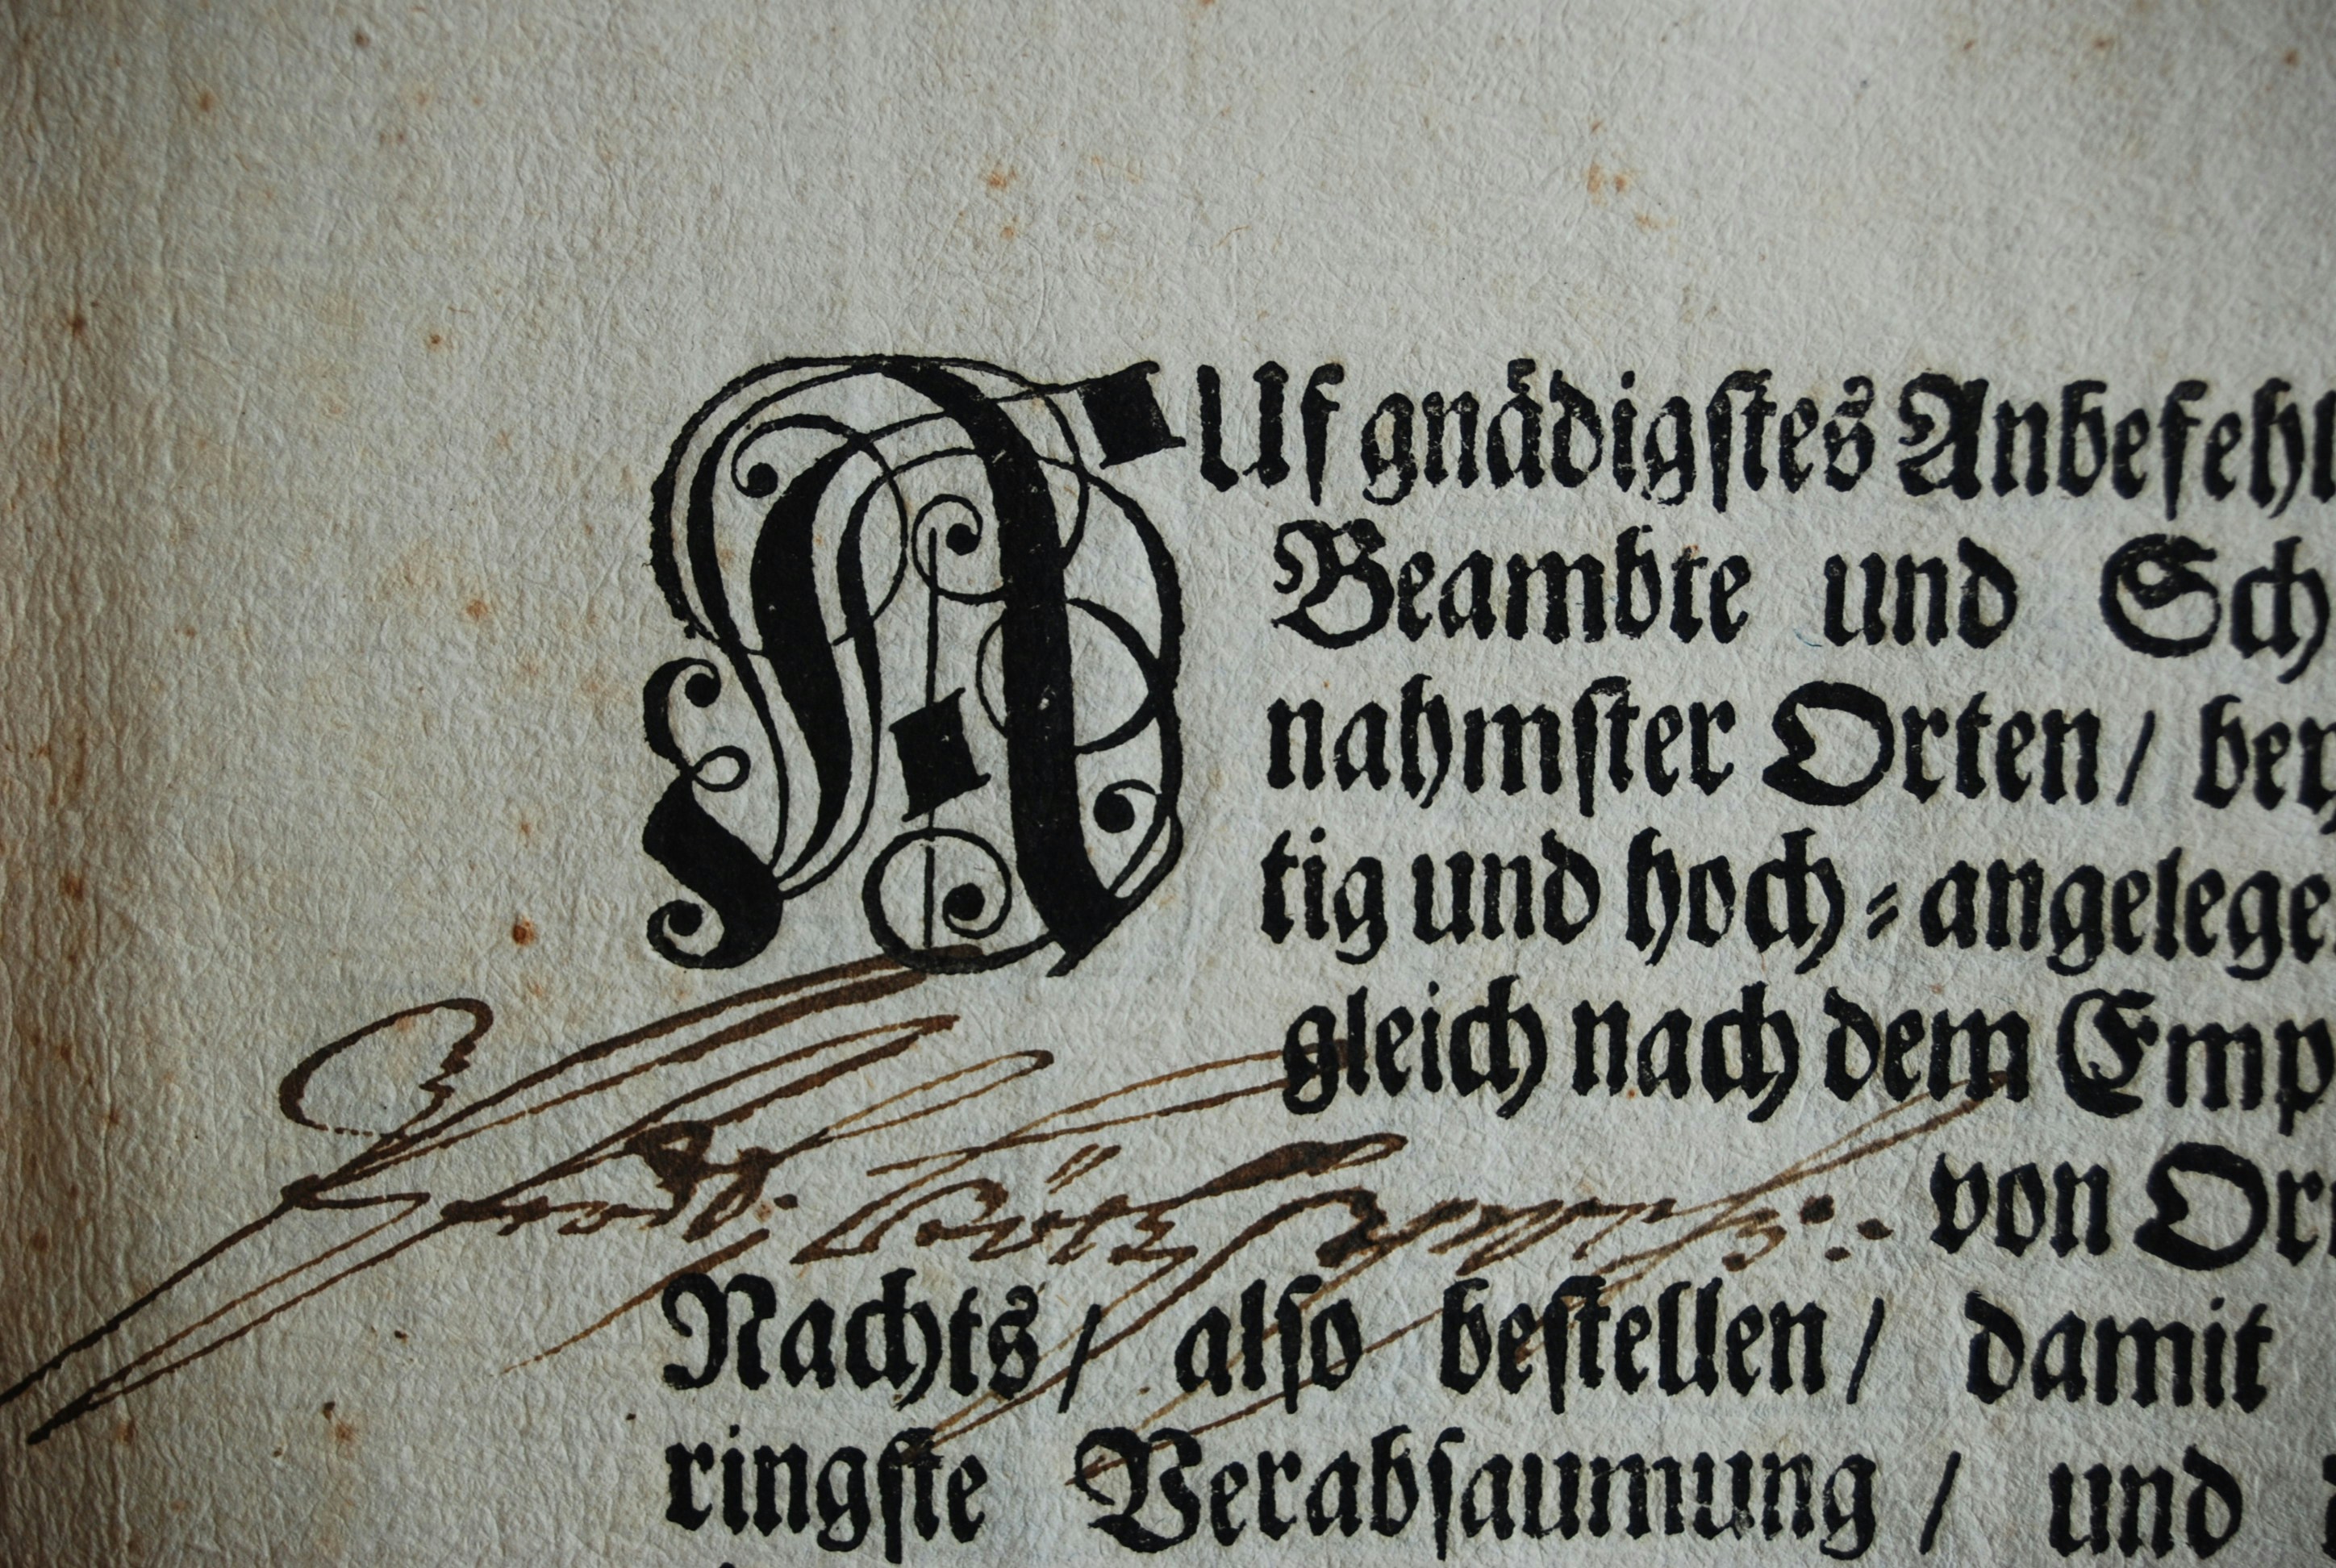 AUf gnädigstes Anbefehl
Beambte und Sch
nahmster Orten / bey
tig und hoch=angelege
gleich nach dem Emp
von Or
Nachts / also bestellen / damit
ringste Verabsaumung / und